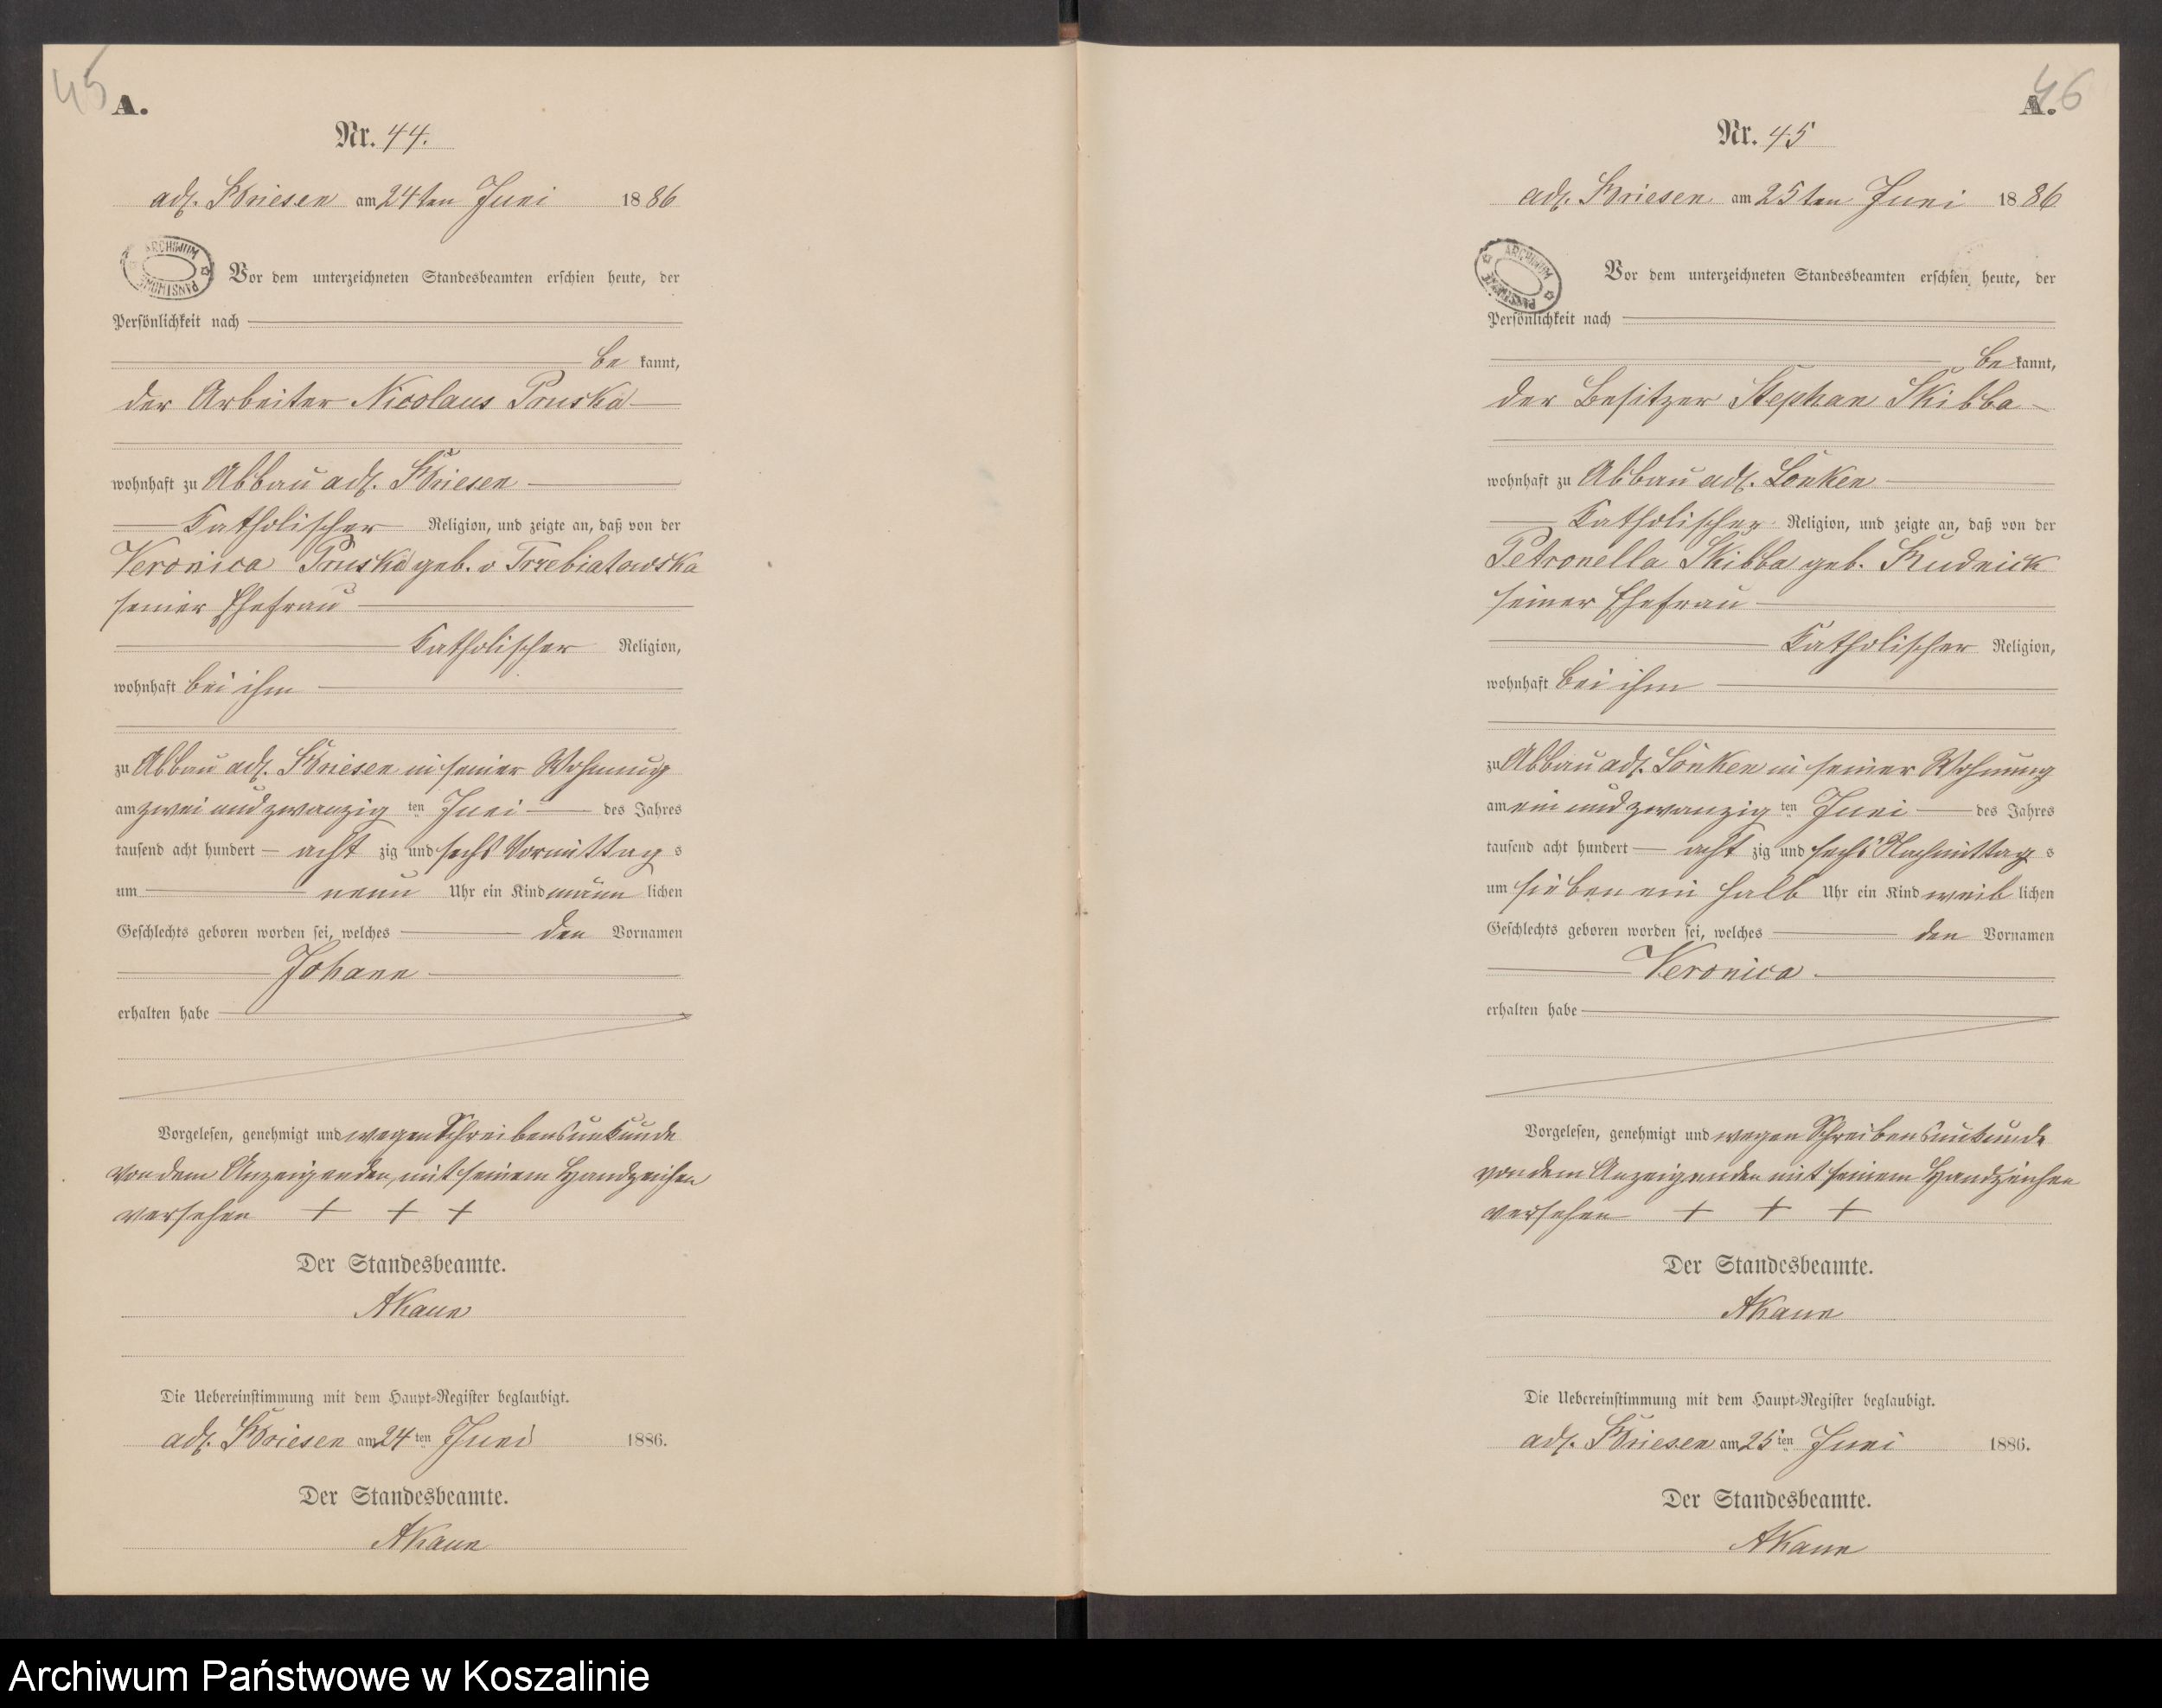 45
A.
Nr. 44.
adl. Briesen am 24ten Juni 1886
ARCHIWUM PAŃSTWOWE
Vor dem unterzeichneten Standesbeamten erschien heute, der
Persönlichkeit nach
be kannt,
der Arbeiter Nicolaus Pruska
wohnhaft zu Abbau adl. Briesen
Katholischer Religion, und zeigte an, daß von der
Veronica Pruska geb. v Trzebiatowska
seiner Ehefrau
Katholischer Religion,
wohnhaft bei ihm
zu Abbau adl. Briesen in seiner Wohnung
am zwei und zwanzig ten Juni des Jahres
tausend acht hundert acht zig und sechs Vormittag s
um neun Uhr ein Kind männ lichen
Geschlechts geboren worden sei, welches den Vornamen
Johann
erhalten habe
Vorgelesen, genehmigt und wegen Schreibensunkunde
von dem Anzeigenden, mit seinem Handzeichen
versehen + + +
Der Standesbeamte.
AKaun
Die Uebereinstimmung mit dem Haupt-Register beglaubigt.
adl. Briesen am 24 ten Juni 1886.
Der Standesbeamte.
AKaun
46
A.
Nr. 45
adl. Briesen am 25ten Juni 1886
ARCHIWUM PAŃSTWOWE
Vor dem unterzeichneten Standesbeamten erschien heute, der
Persönlichkeit nach
be kannt,
der Besitzer Stephan Skibba
wohnhaft zu Abbau adl. Lonken
Katholischer Religion, und zeigte an, daß von der
Petronella Skibba geb. Rudnick
seiner Ehefrau
Katholischer Religion,
wohnhaft bei ihm
zu Abbau adl. Lonken in seiner Wohnung
am ein und zwanzig ten Juni des Jahres
tausend acht hundert acht zig und sechs Nachmittag s
um sieben ein halb Uhr ein Kind weib lichen
Geschlechts geboren worden sei, welches den Vornamen
Veronica
erhalten habe
Vorgelesen, genehmigt und wegen Schreibensunkunde
von dem Anzeigenden mit seinem Handzeichen
versehen + + +
Der Standesbeamte.
AKaun
Die Uebereinstimmung mit dem Haupt-Register beglaubigt.
adl. Briesen am 25 ten Juni 1886.
Der Standesbeamte.
AKaun
Archiwum Państwowe w Koszalinie